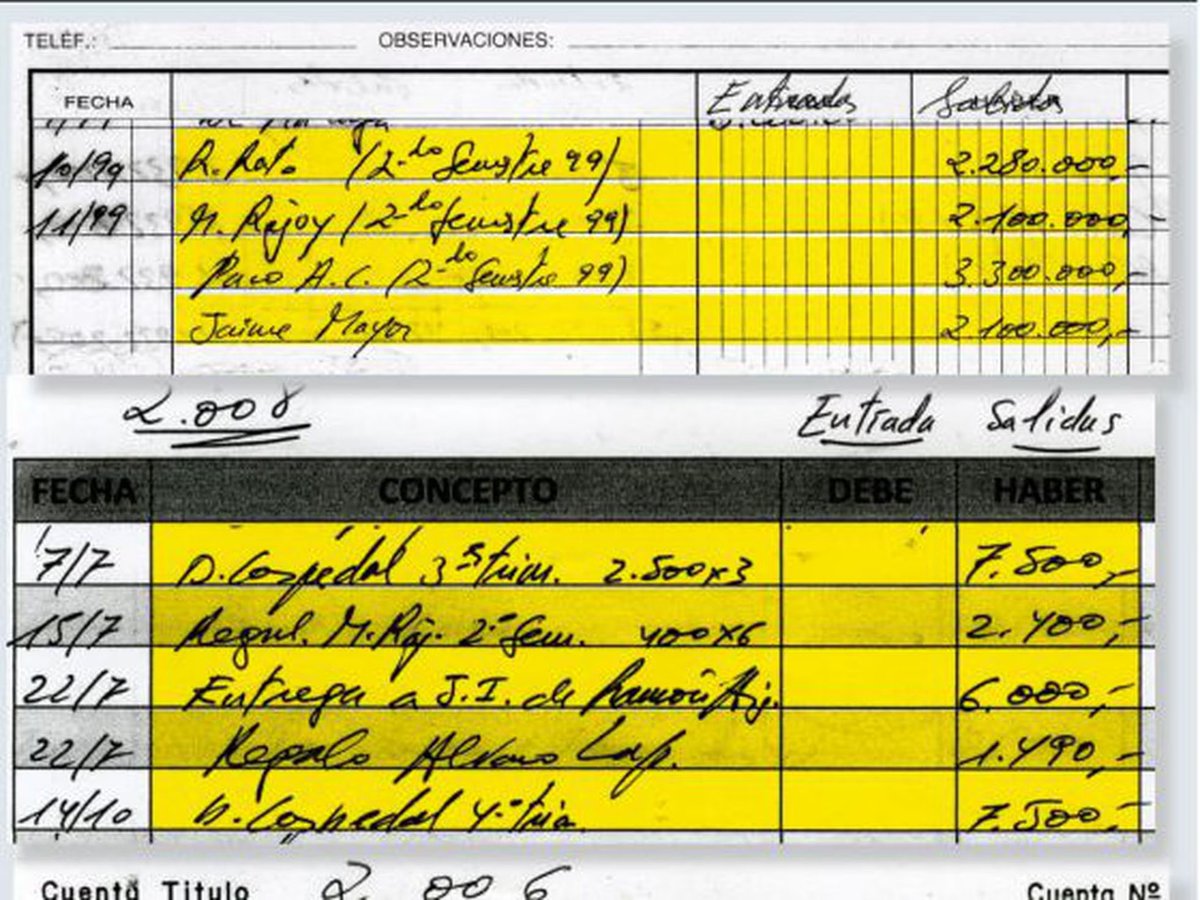 TELÉF.: OBSERVACIONES:
FECHA Entradas Salidas
10/99 R. Rato (2-do Semstre 99) 2.280.000,-
11/99 M. Rajoy (2-do Semstre 99) 2.100.000,-
Paco A.C. (2-do Semstre 99) 3.300.000,-
Jaime Mayor 2.100.000,-
2.008 Entrada Salidas
FECHA CONCEPTO DEBE HABER
7/7 D. Cospedal 3er trim. 2.500x3 7.500,-
15/7 Regul. M. Raj. 2º Sem. 400x6 2.400,-
22/7 Entrega a J.I. de Ramón Aig. 6.000,-
22/7 Regalo Alvaro Lap. 1.490,-
14/10 D. Cospedal 4º trim. 7.500,-
Cuenta Titulo 2.006 Cuenta Nº